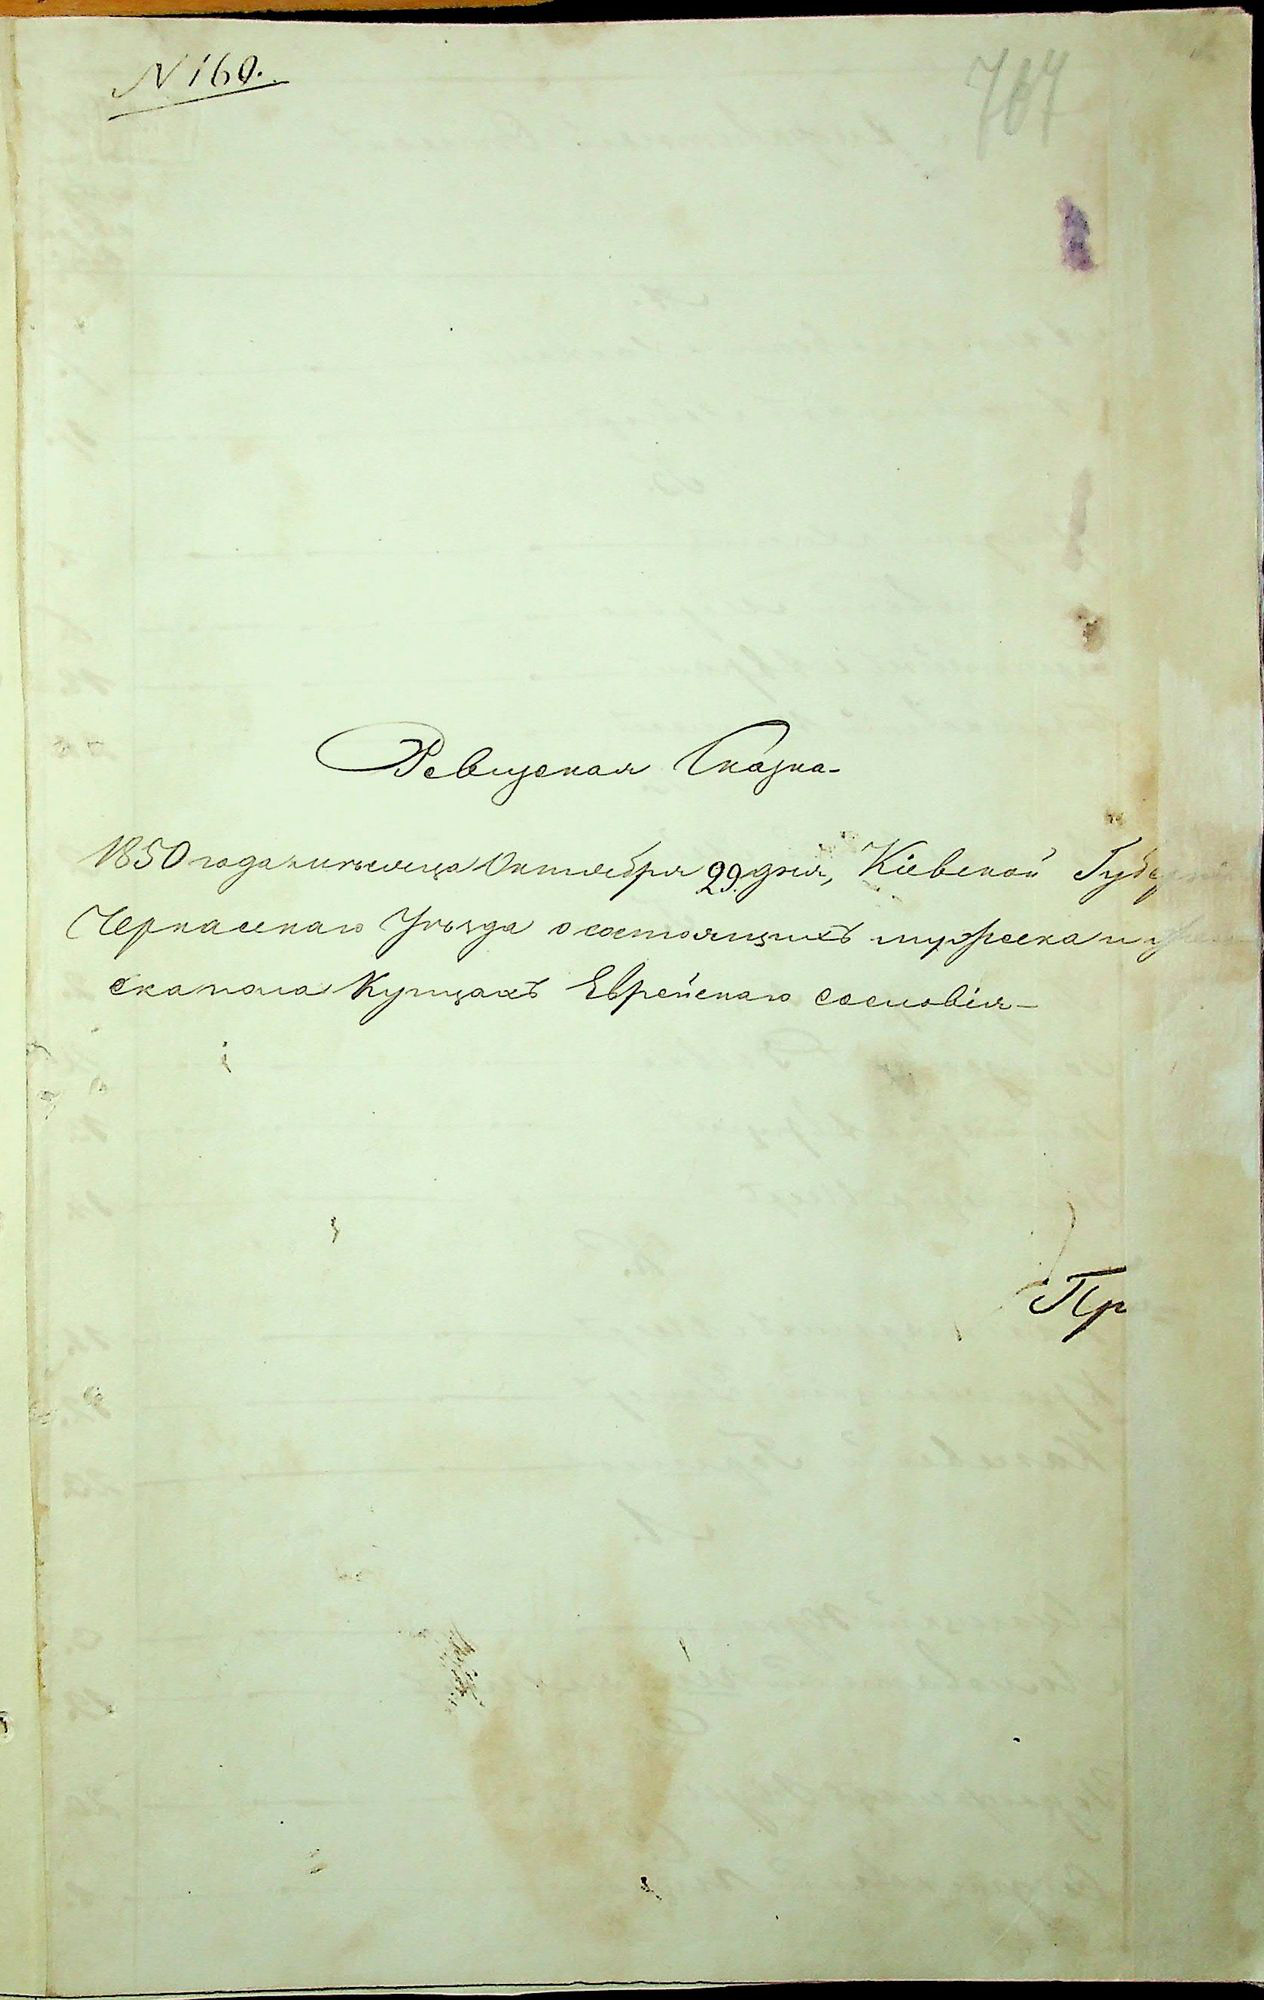 N 160.
767
Ревизская Сказка
1850 года месяца Октября 29. дня, Кіевской Губер
Черкаскаго Уѣзда о состоящихъ мужеска и
ска пола Купцахъ Еврейскаго сословія
Пр